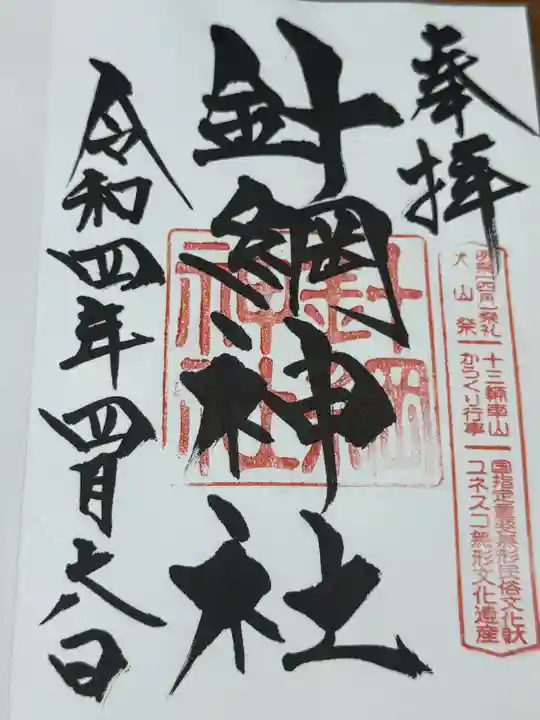 奉拝
針綱神社
令和四年四月六日
針綱
神社
犬山祭
十三輌車山
からくり行事
国指定重要無形民俗文化財
ユネスコ無形文化遺産